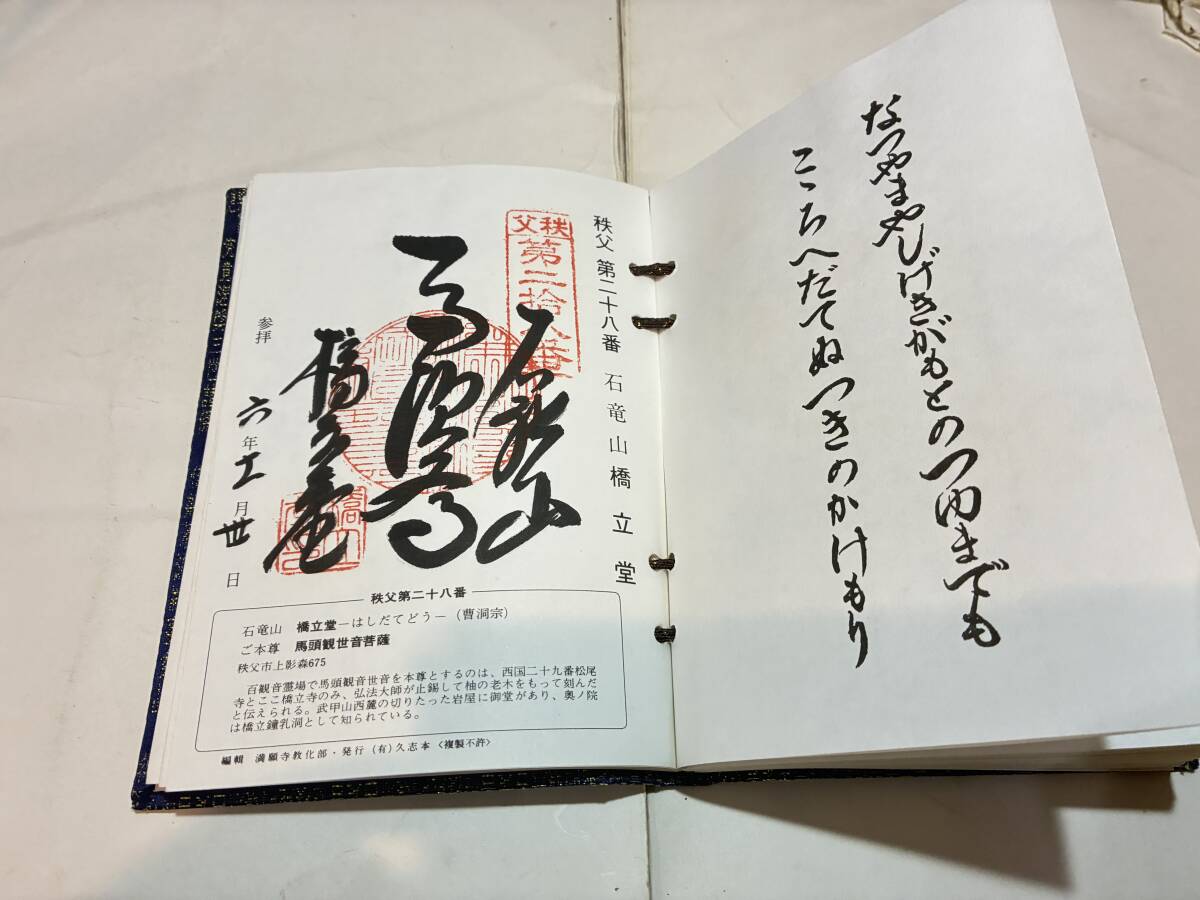 なつやましげきがもとのつゆまでも
こゝろへだてぬつきのかけもり
秩父 第二十八番 石竜山橋立堂
秩父
第二拾八番
石龍山
馬頭尊
橋立堂
参拝 六年十一月卅日
秩父第二十八番
石竜山 橋立堂―はしだてどう―(曹洞宗)
ご本尊 馬頭観世音菩薩
秩父市上影森675
百観音霊場で馬頭観世音を本尊とするのは、西国二十九番松尾
寺とここ橋立寺のみ、弘法大師が止錫して柚の老木をもって刻んだ
と伝えられる。武甲山西麓の切りたった岩屋に御堂があり、奥ノ院
は橋立鐘乳洞として知られている。
編輯 満願寺教化部・発行 (有)久志本 <複製不許>